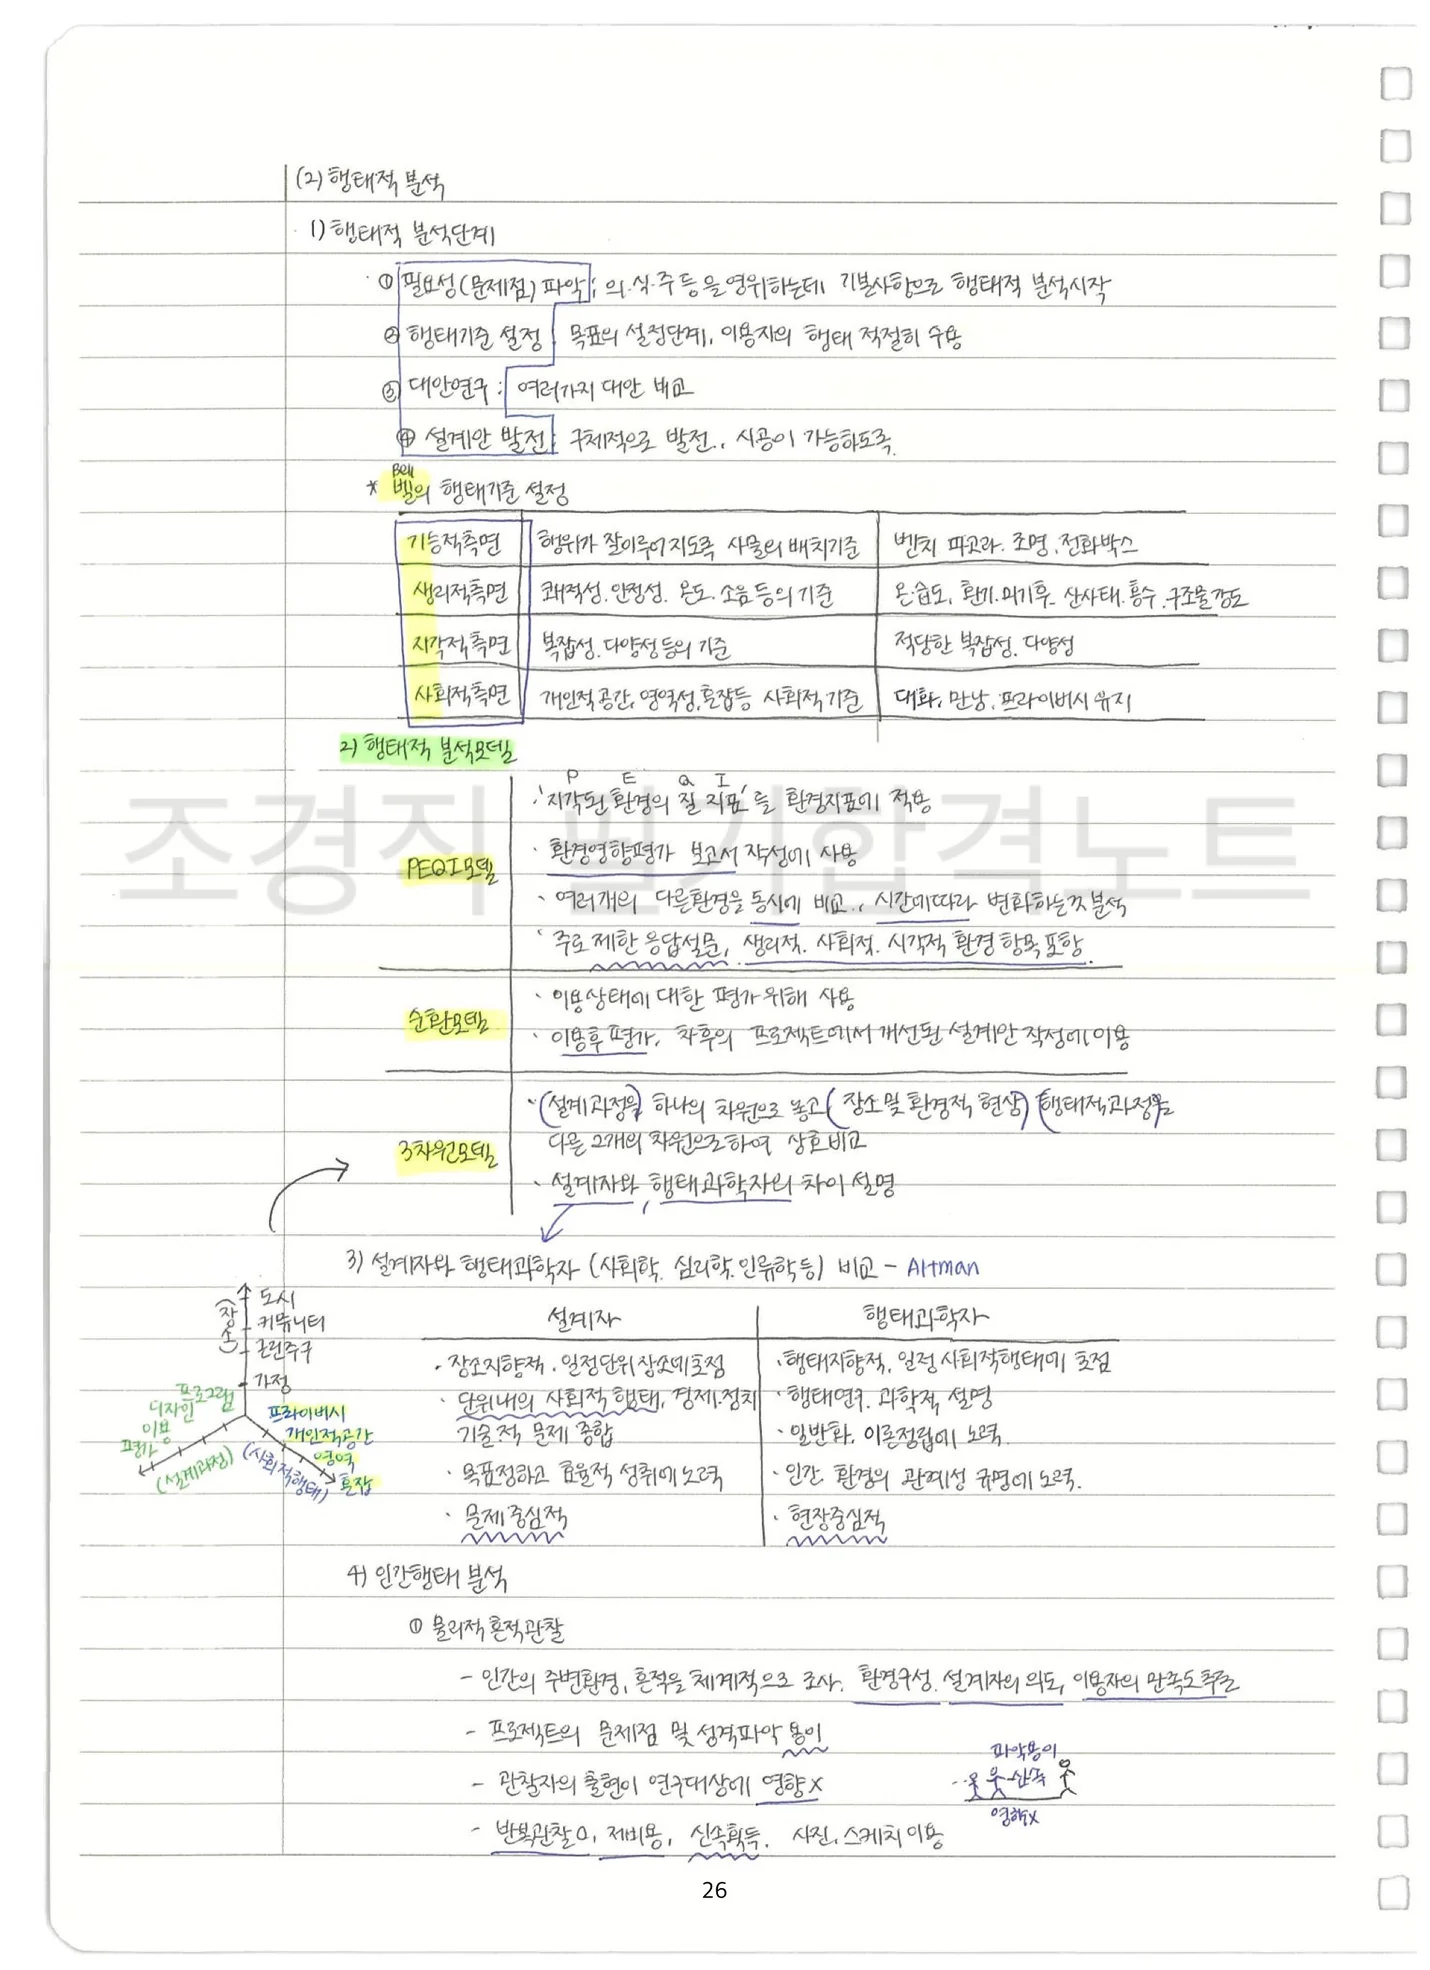 (2) 행태적 분석
1) 행태적 분석단계
① 필요성(문제점) 파악 : 의·식·주 등을 영위하는데 기본사항으로 행태적 분석시작
② 행태기준 설정 목표의 설정단계, 이용자의 행태 적절히 수용
③ 대안연구 : 여러가지 대안 비교
④ 설계안 발전 : 구체적으로 발전., 시공이 가능하도록.
Bell
* 벨의 행태기준 설정
기능적측면 행위가 잘이루어지도록 사물의 배치기준 벤치 파고라. 조명. 전화박스
생리적측면 쾌적성. 안정성. 온도. 소음등의 기준 온·습도, 환기. 미기후. 산사태. 홍수. 구조물강도
지각적측면 복잡성. 다양성등의 기준 적당한 복잡성. 다양성
사회적측면 개인적공간, 영역성, 혼잡등 사회적기준 대화, 만남, 프라이버시 유지
2) 행태적 분석모델
P E Q I
PEQI모델
· '지각된 환경의 질 지표'를 환경지표에 적용
· 환경영향평가 보고서 작성에 사용
· 여러개의 다른환경을 동시에 비교., 시간에따라 변화하는것 분석
· 주로 제한 응답설문, 생리적. 사회적. 시각적 환경 항목 포함.
순환모델
· 이용상태에 대한 평가 위해 사용
· 이용후 평가, 차후의 프로젝트에서 개선된 설계안 작성에 이용
3차원모델
· (설계과정을) 하나의 차원으로 놓고 (장소 및 환경적 현상) (행태적과정)을
다른 2개의 차원으로하여 상호비교
· 설계자와, 행태과학자의 차이 설명
3) 설계자와 행태과학자 (사회학. 심리학. 인류학등) 비교 - Altman
(장소)
도시
커뮤니티
근린주구
가정
프로그램
디자인
이용
평가
(설계과정)
프라이버시
개인적공간
영역
혼잡
(사회적행태)
설계자 행태과학자
· 장소지향적. 일정단위 장소에초점 · 행태지향적, 일정 사회적행태에 초점
· 단위내의 사회적 행태, 경제.정치 · 행태연구. 과학적 설명
기술적 문제 종합 · 일반화, 이론정립에 노력.
· 목표정하고 효율적 성취에노력 · 인간 환경의 관계성 규명에 노력.
· 문제중심적 · 현장중심적
4) 인간행태 분석
① 물리적흔적관찰
- 인간의 주변환경, 흔적을 체계적으로 조사. 환경구성. 설계자의 의도, 이용자의 만족도 추론
- 프로젝트의 문제점 및 성격파악 용이
- 관찰자의 출현이 연구대상에 영향X
- 반복관찰O, 저비용, 신속획득. 사진, 스케치 이용
파악용이
영향X
조경직 필기합격노트
26